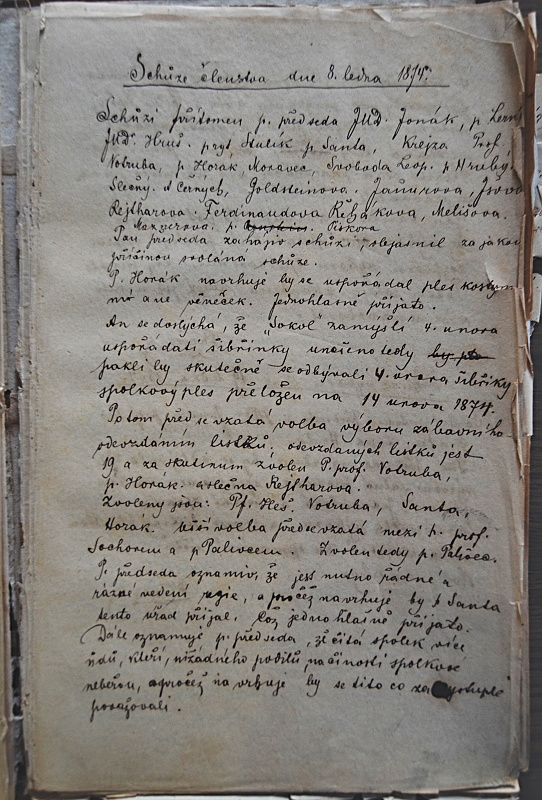 Schůze členstva dne 8. ledna 1874.
Schůzi přítomen p. předseda JUD. Jonák, p.
JUDr. Hruš. Stulík p. Santa, Krejza Prof.
Votruba, p Horák Moravec, Svoboda Leop. p Hrubý.
Slečny. Černých, Goldsteinova. Janurova,
Rejtharova. Ferdinandova Řehákova, Melišova.
p. Piskora
Pan předseda zahájiv schůzi, objasnil za jakou
příčinou svolána schůze.
P. Horák navrhuje by se uspořádal ples kostym
ní a ne věneček. Jednohlasně přijato.
An se doslýchá, že „Sokol" zamýšlí 4. února
uspořádati šibřinky určeno tedy by ple
pakli by skutečně se odbývali 4. února šibřiky
spolkový ples přeložen na 14 února 1874.
Potom předsevzatá volba výboru zábavního
odevzdáním lístků, odevzdaných lístků jest
19 a za skutinum zvolen P. prof. Votruba,
p. Horák a slečna Rejtharova.
Zvoleny jsou: Pp. Heš. Votruba, Santa,
Horák. Užší volba předsevzatá mezi p. prof.
Sochorem a p Palivcem. Zvolen tedy p. Palivec.
P. předseda oznamiv, že jest nutno řádné a
rázné vedení regie, a pročež navrhuje by p Santa
tento úřad přijal. Což jednohlasně přijato.
Dále oznamuje p. předseda, že čítá spolek více
údů, kteří, nižádného podílu na činosti spolkové
neberou, a pročež navrhuje by se tito co za vystuplé
považovali.